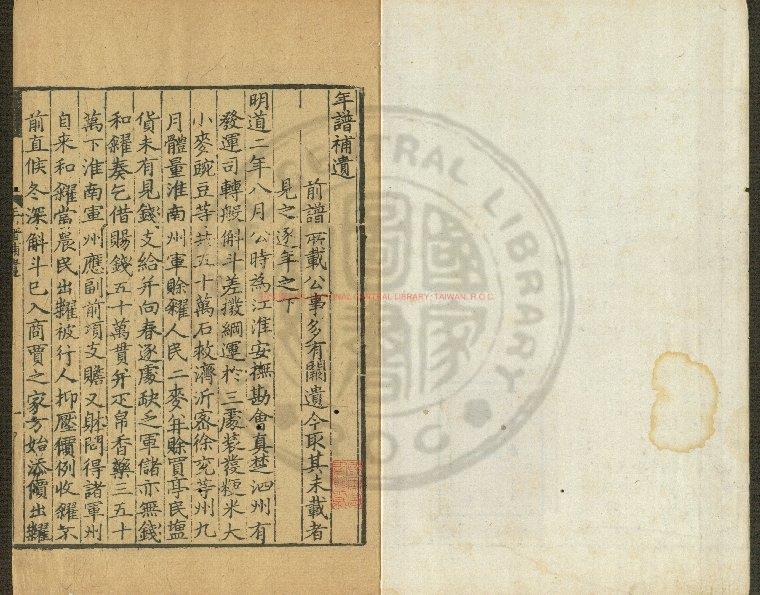 年譜補遺
前譜所載公事多有闕遺今取其未載者
見之逐年之下
明道二年八月公時為江淮安撫勘會真楚泗州有
發運司轉般斛斗差撥綱運於三處裝發粳米大
小麥豌豆等共五十萬石救濟沂密徐兗等州九
月體量淮南州軍賒糴人民二麥并賒買亭民塩
貨未有見錢支給并向春逐處缺乏軍儲亦無錢
和糴奏乞借賜錢五十萬貫并疋帛香藥三五十
萬下淮南軍州應副前項支贍又躰問得諸軍州
自来和糴當農民出糶被行人抑壓價例收糴不
前直候冬深斛斗已入商賈之家方始添價出糶
NATIONAL CENTRAL LIBRARY, TAIWAN, R.O.C.
CENTRAL LIBRARY
國家
圖書
ROC